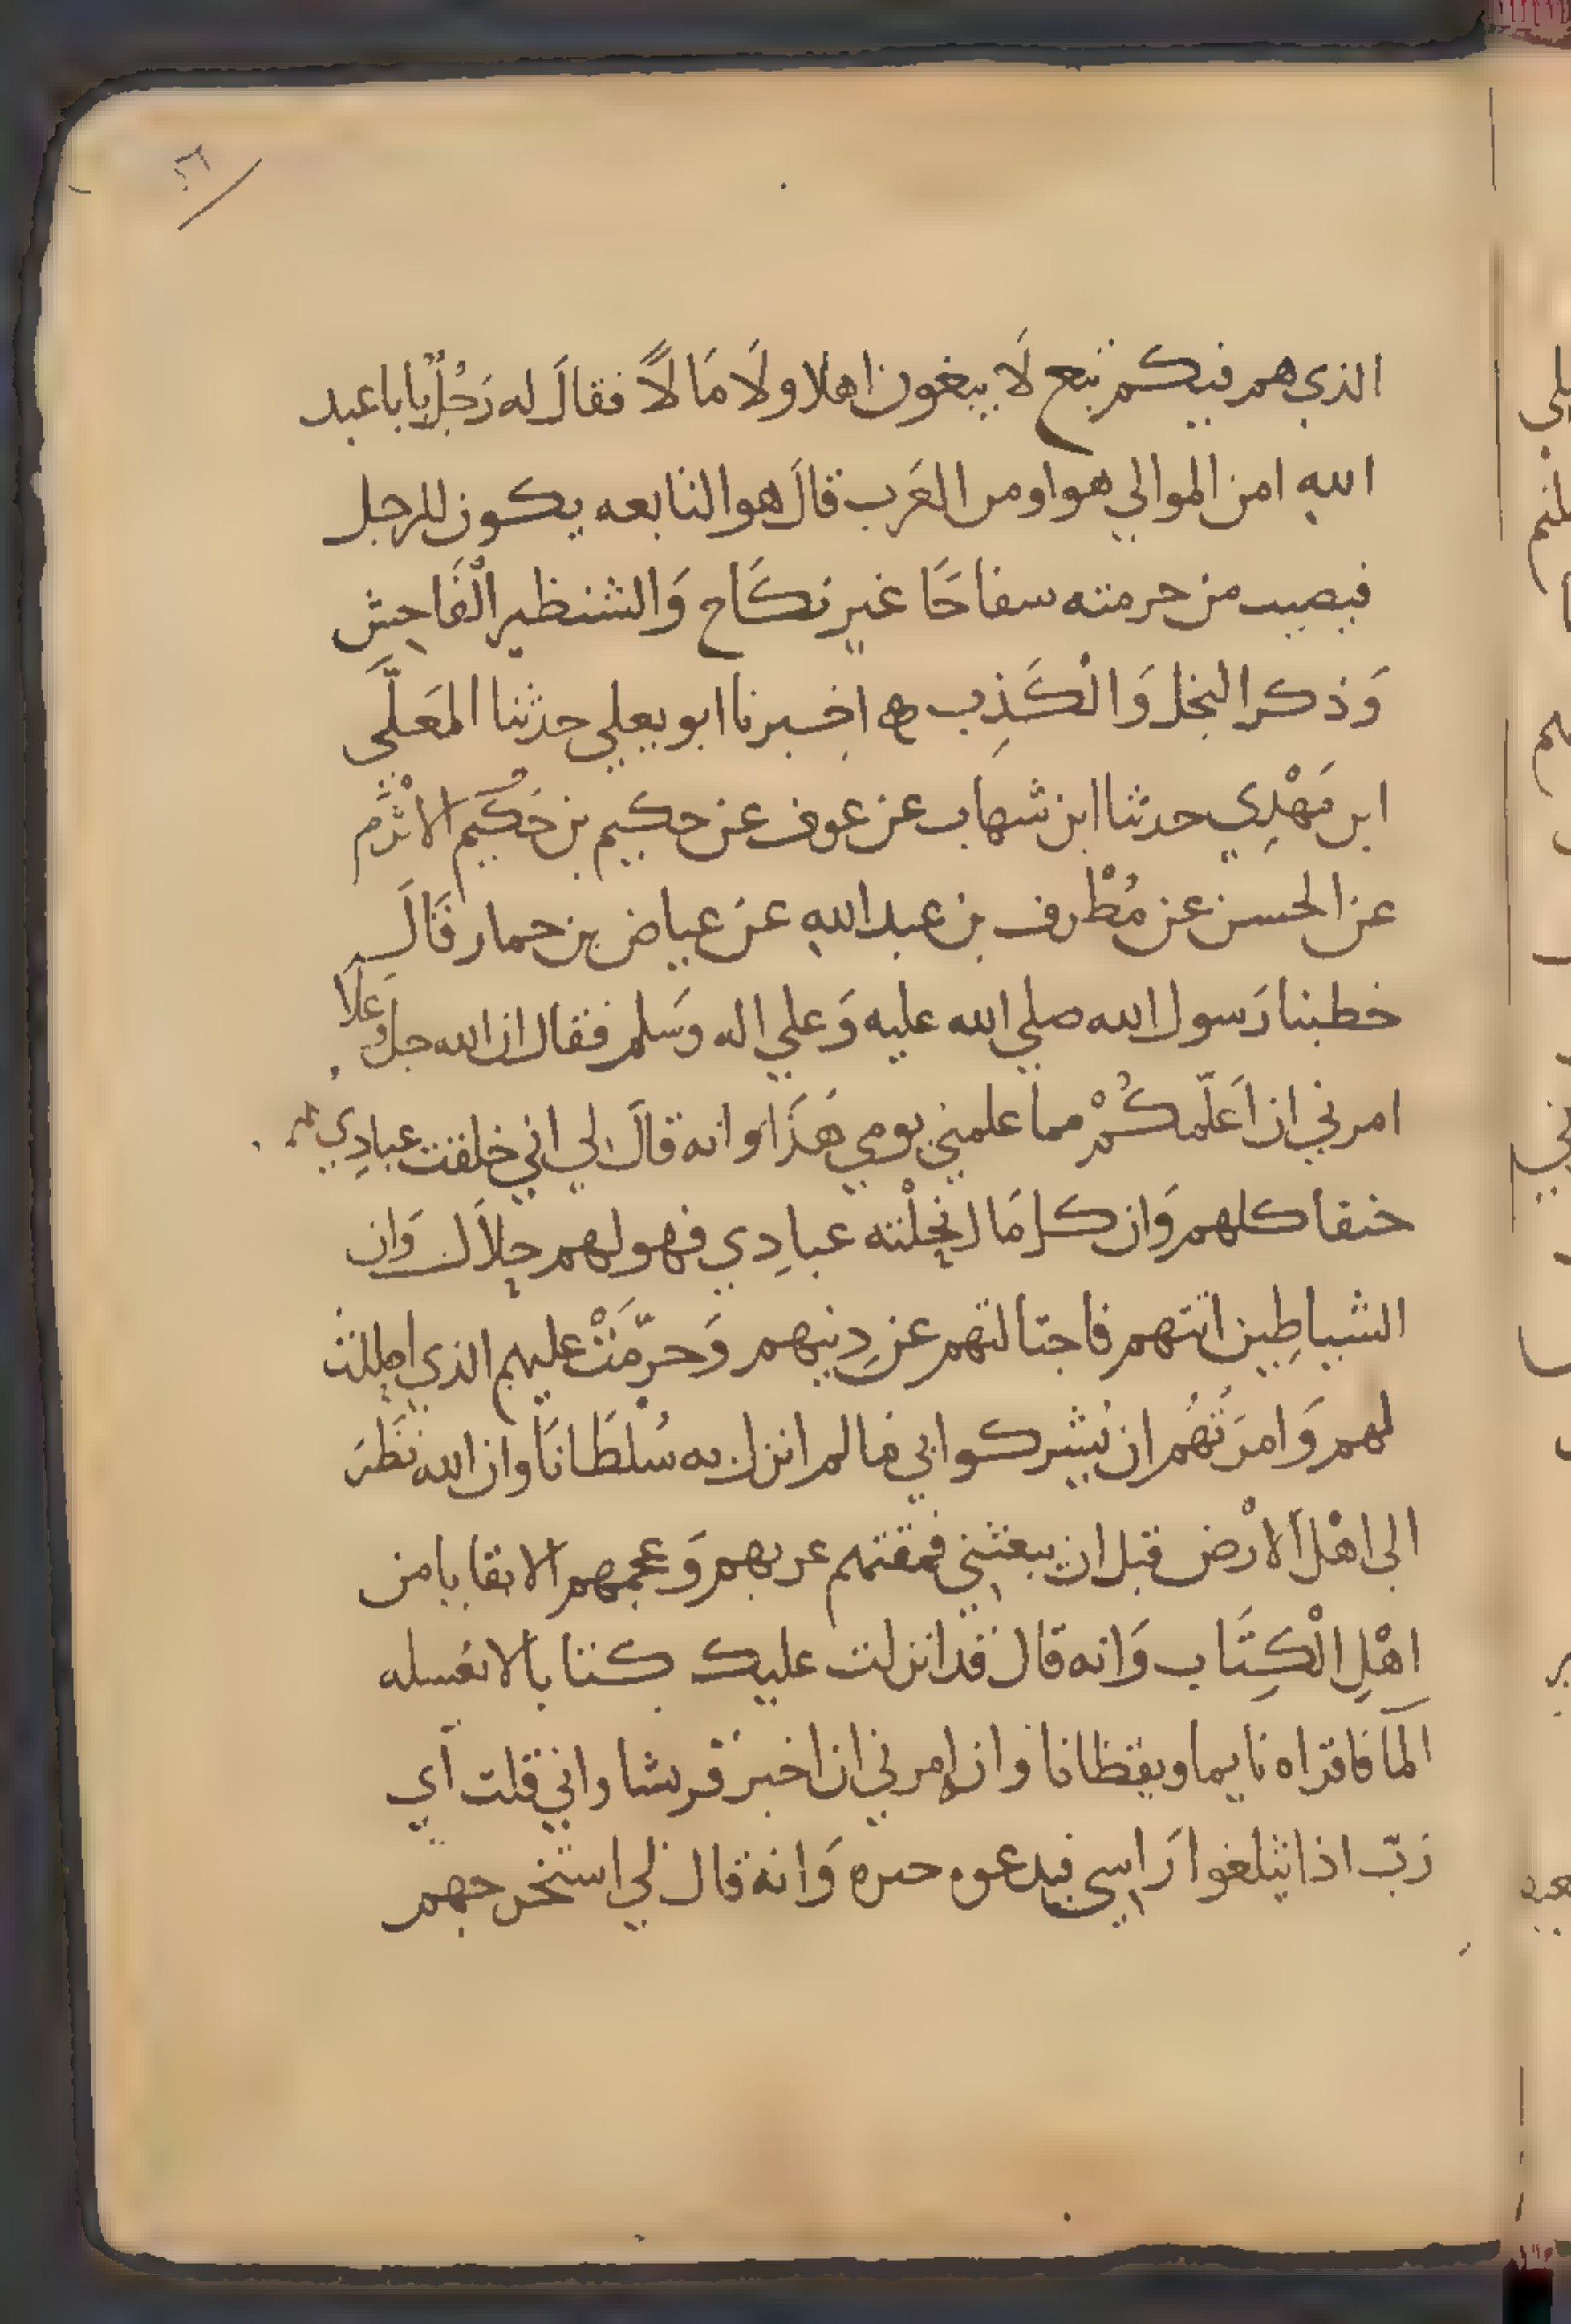 ٥٦
الذي هم فيكم تبع لَا يبغون اهلا ولَا مَالًا فقالَ له رَجُلٌ يابا عبد
اللهِ امن الموالي هو او من العَرب قالَ هو التابعه يكون للرجل
فيصيب من حرمته سفاحَا غير نكَاح وَالشنظير الْفَاحِش
وَذكر البخل وَالْكَذِب ه اخبرنا ابو يعلي حدثنا المعَلَّى
ابن مَهْدِي حدثنا ابن شهاب عن عوف عن حكيم بن حَكُيم الاثْرَم
عن الحسن عن مُطْرف بن عبد اللهِ عن عياض بن حمار قَالَ
خطبنا رَسول الله صلي الله عليه وَعلي اله وَسلم فقال ان الله جل وعَلَا
امرني ان اَعَلّمكُمْ مما علمني يومي هَذَا وانه قالَ لي اني خلقت عبادِي
حنفا كلهم وَان كل مَا انحلْته عبادِي فهو لهم حلَال وَان
الشياطِين اتتهم فاجتالتهم عن دِينهم وَحرّمَتْ عليهم الذي احللت
لهم وَامرَتْهُم ان يُشركوا بي مَا لم انزل به سُلطَانَا وان الله نَظَرَ
الى اهْل الارْض قبل ان يبعثني فمقتهم عربهم وَعجمهم الا بقايا من
اهْلِ الْكِتَاب وَانه قال قد انزلت عليك كتابا لا يغسله
المآ فاقراه نايما ويقظانا وان امرني ان اخبرَ قريشا واني قلت اَي
رَبّ اذا يثلغوا رَاسي فيدعوه خبزه وَانه قال لي استخرجهم